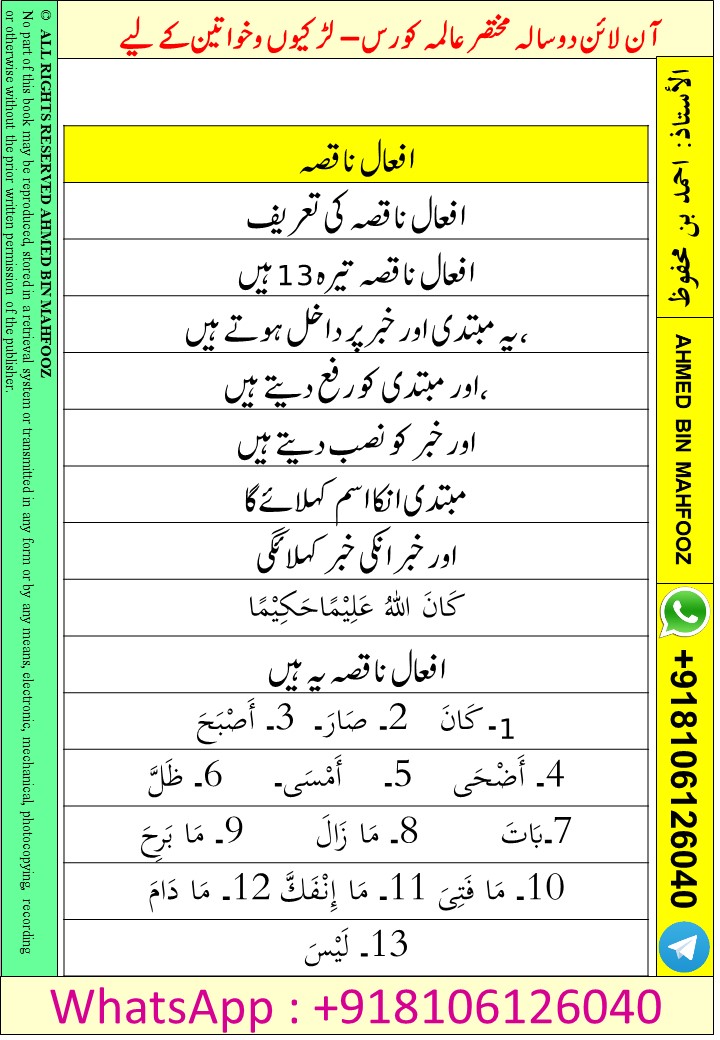 آن لائن دو سالہ مختصر عالمہ کورس – لڑکیوں و خواتین کے لیے
افعال ناقصہ
افعال ناقصہ کی تعریف
افعال ناقصہ تیرہ 13 ہیں
،یہ مبتدی اور خبر پر داخل ہوتے ہیں
،اور مبتدی کو رفع دیتے ہیں
اور خبر کو نصب دیتے ہیں
مبتدی انکا اسم کہلائے گا
اور خبر انکی خبر کہلائگی
كَانَ اللهُ عَلِيْمًا حَكِيْمًا
افعال ناقصہ یہ ہیں
1۔ كَانَ 2۔ صَارَ۔ 3۔ أَصْبَحَ
4۔ أَضْحَى 5۔ أَمْسَى۔ 6۔ ظَلَّ
7۔بَاتَ 8۔ مَا زَالَ 9۔ مَا بَرِحَ
10۔ مَا فَتِیَ 11۔ مَا إِنْفَكَّ 12۔ مَا دَامَ
13۔ لَيْسَ
الأستاذ: احمد بن محفوظ
AHMED BIN MAHFOOZ
+918106126040
© ALL RIGHTS RESERVED AHMED BIN MAHFOOZ
No part of this book may be reproduced, stored in a retrieval system or transmitted in any form or by any means, electronic, mechanical, photocopying, recording
or otherwise without the prior written permission of the publisher.
WhatsApp : +918106126040